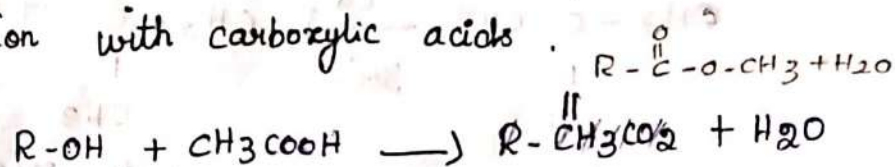 on with carboxylic acids .
O
||
R - C - O - CH3 + H2O
R-OH + CH3COOH ⟶ R- CH3CO2 + H2O